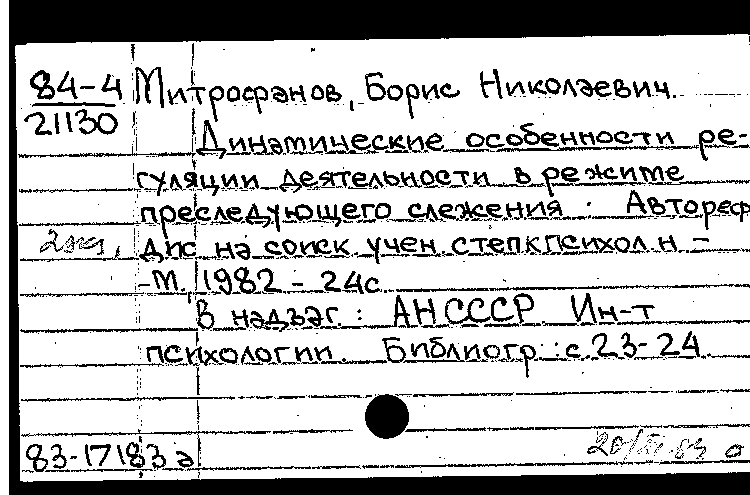 84-4 Митрофанов, Борис Николаевич.
21130
Динамические особенности ре-
гуляции деятельности в режиме
преследующего слежения . Автореф
2экз, дис на соиск учен.степ к психол н –
-М, 1982 – 24с
В надзаг. : АН СССР. Ин-т
психологии. Библиогр.: с.23-24.
83-17183 а